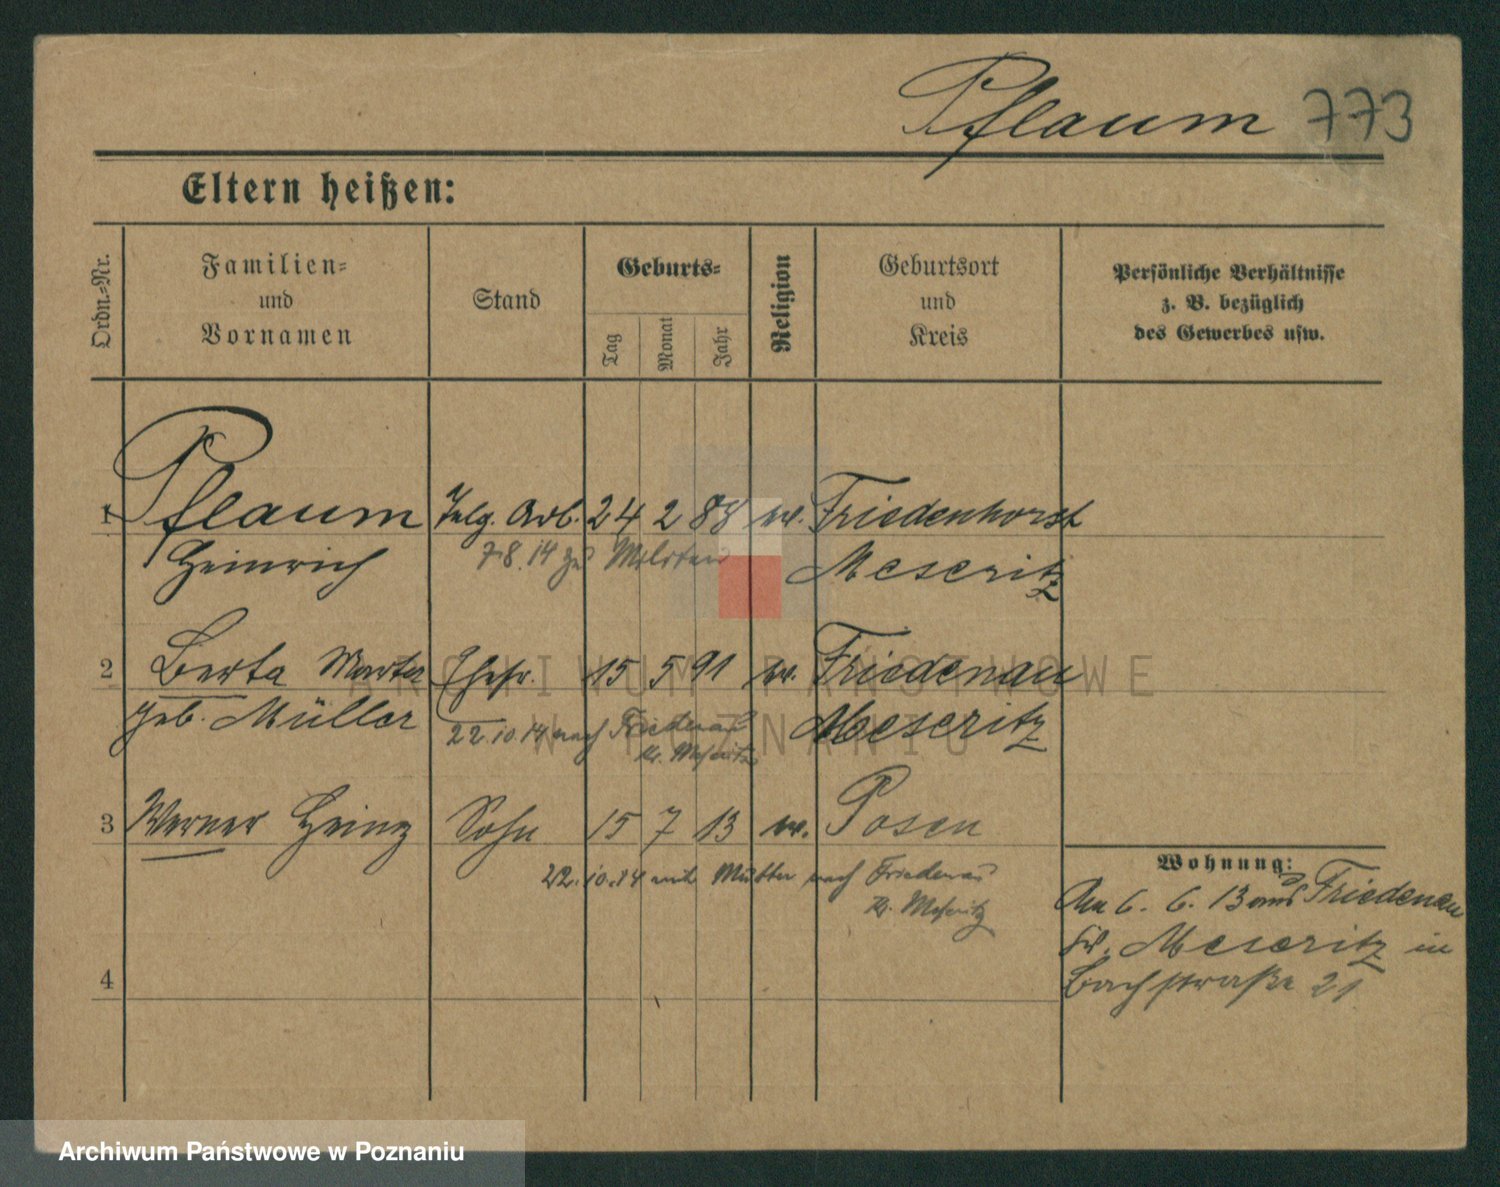 Pflaum 773
Eltern heißen:
Ordn.-Nr.
Familien-
und
Vornamen
Stand
Geburts-
Tag
Monat
Jahr
Religion
Geburtsort
und
Kreis
Persönliche Verhältnisse
z. B. bezüglich
des Gewerbes usw.
1 Pflaum Telg. Arb. 24 2 88 ev. Friedenhorst
Heinrich 7.8.14 zu Militär Meseritz
2 Berta Marta Ehefr. 15 5 91 ev. Friedenau
geb. Müller 22.10.14 nach Friedenau Meseritz
Kr. Meseritz
3 Werner Heinz Sohn 15 7 13 ev. Posen
22.10.14 mit Mutter nach Friedenau
Kr. Meseritz
4
Wohnung:
Am 6. 6. 13 aus Friedenau
Kr. Meseritz in
Bachstraße 21
ARCHIWUM PAŃSTWOWE
W POZNANIU
Archiwum Państwowe w Poznaniu